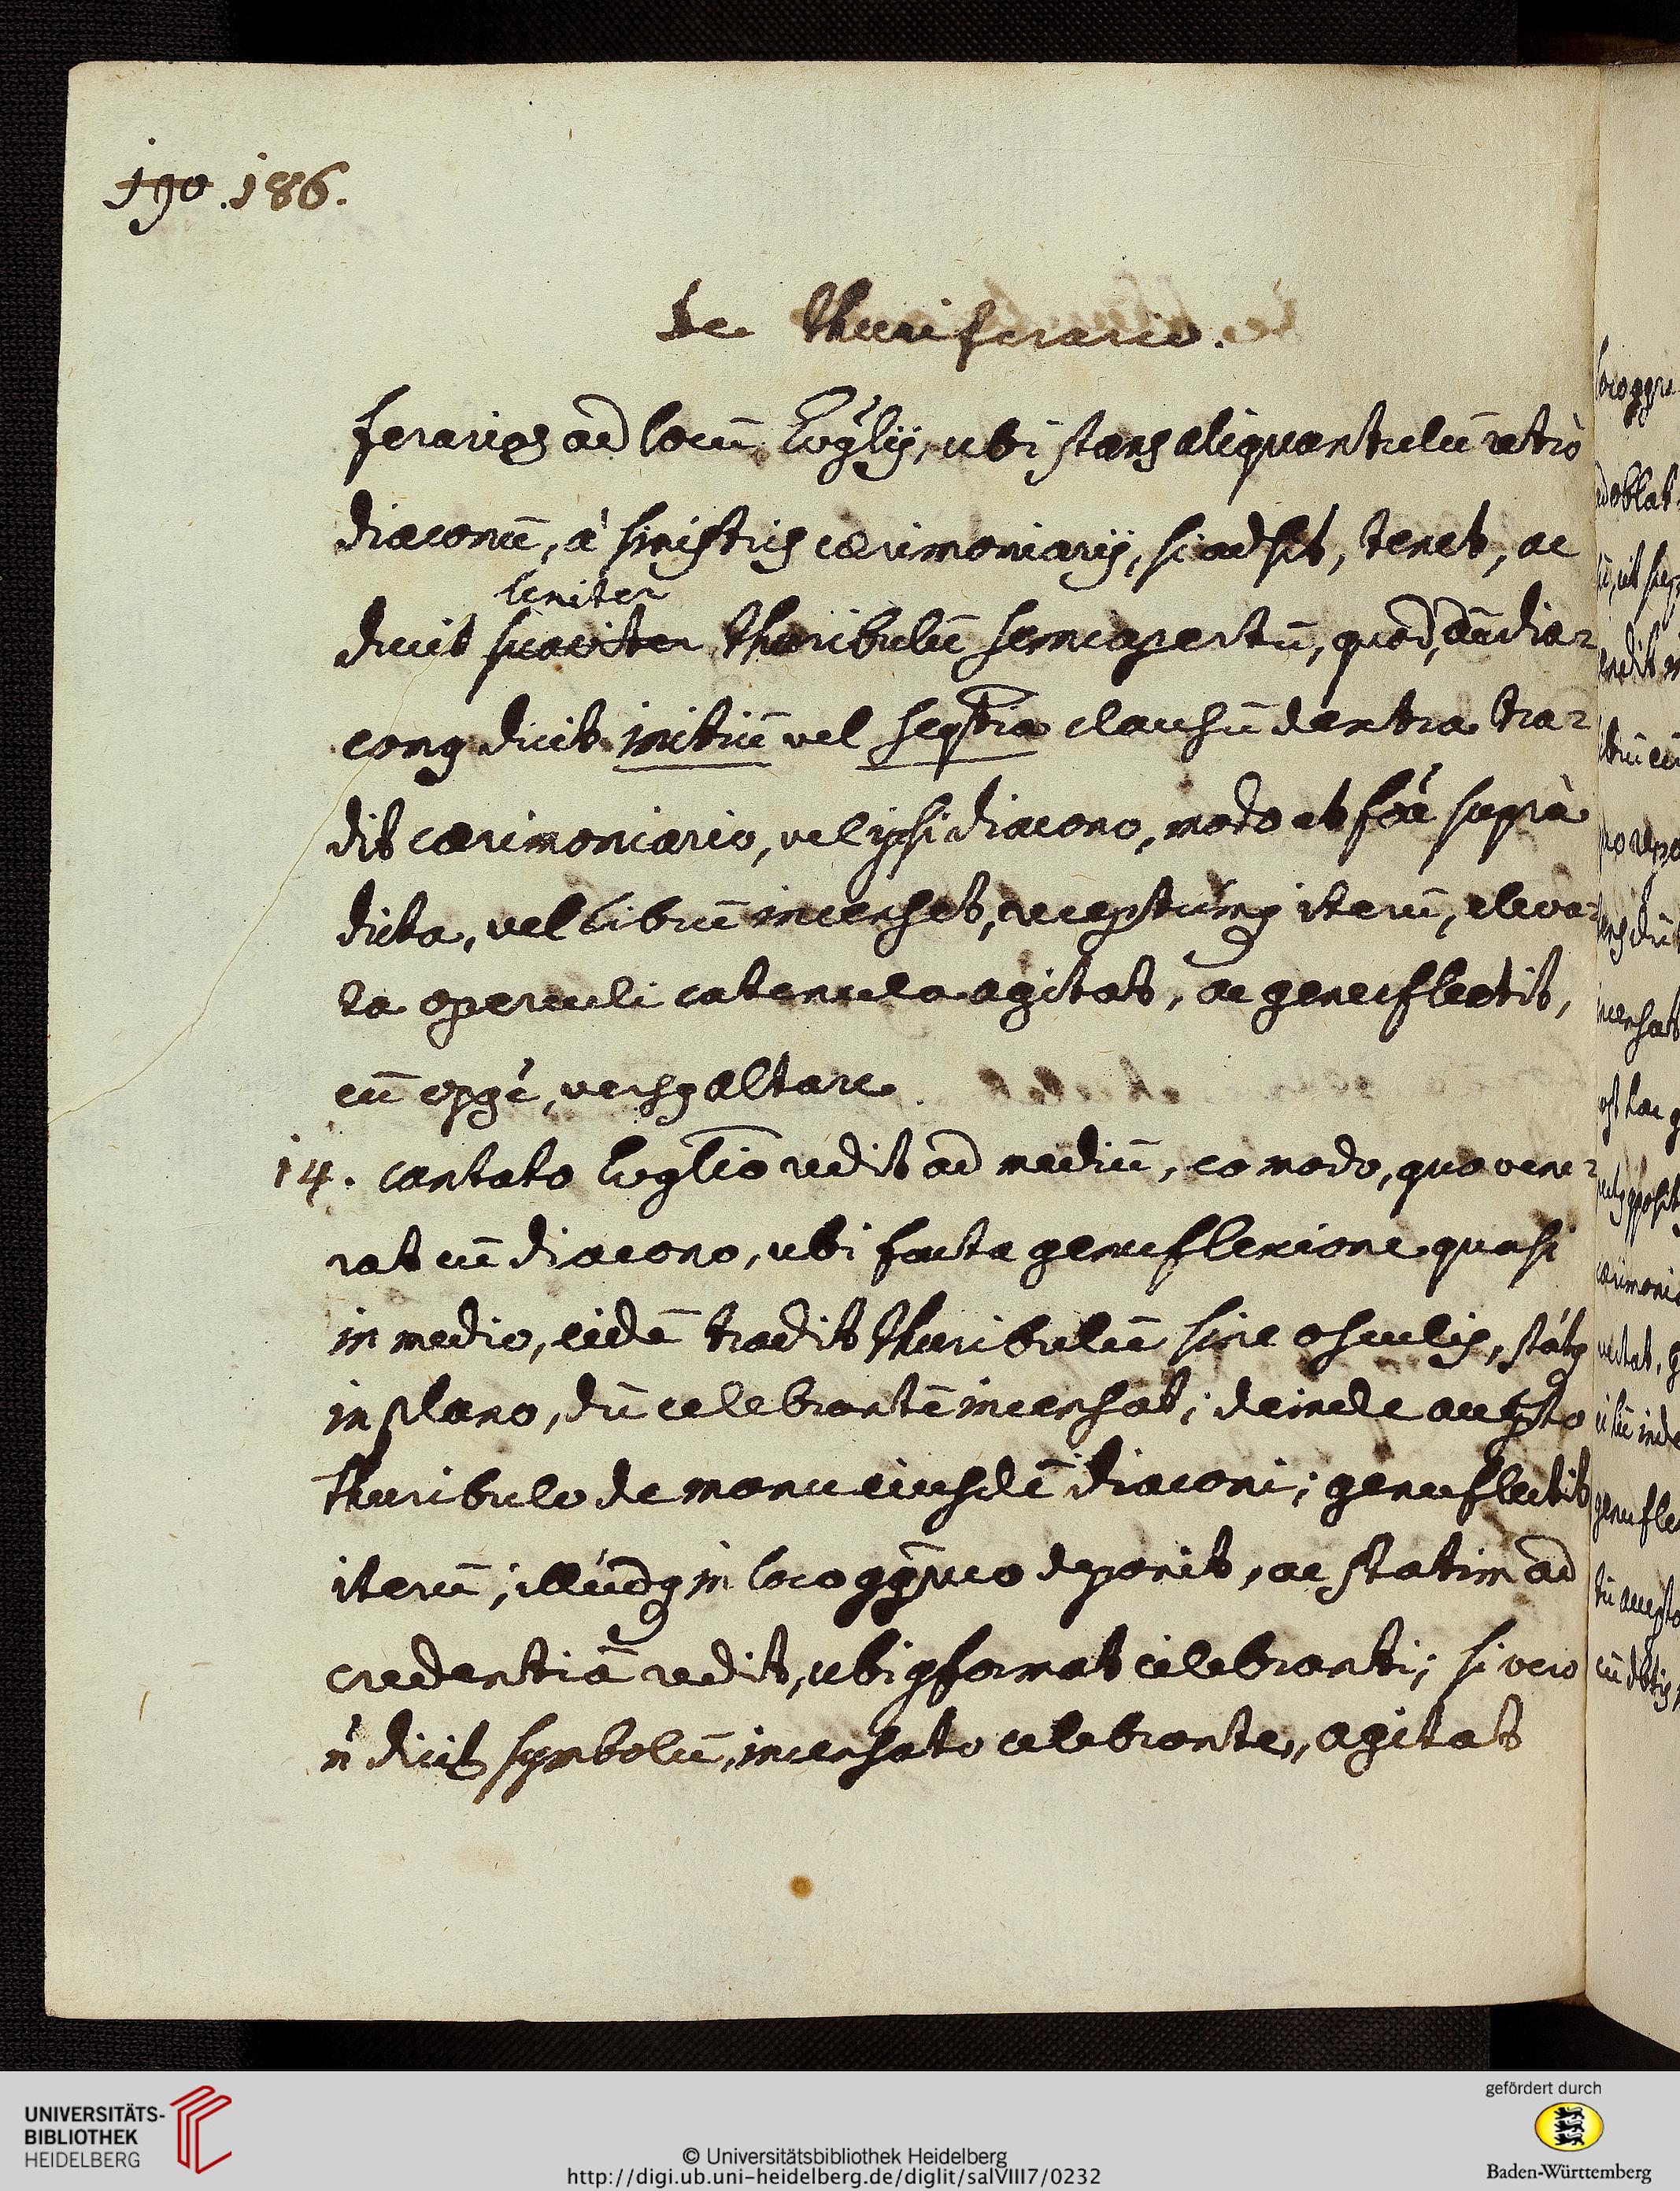 190. 186.
De Thuriferario.
ferariꝰ ad locū Evãglij, ubi stans aliquantulū retrò
diaconū, à sinistris cærimoniarij, si adsit, tenet, ac
leniter
ducit suaviter thuribulū semiapertū, quod, dum dia=
conꝰ dicit initiū vel seqntia clausū dextra tra=
dit cærimoniario, vel ipsi diacono, modo et forā suprà
dicta, vel librū incenset, receptumꝗ iterū, eleva=
ta operculi catenula agitat, ac genuflectit,
cū opꝰ ē, versꝰ altare.
14. Cantato Evglio redit ad mediū, eo modo, quo vene=
rat cū diacono, ubi facta genuflexione quasi
in medio, eidē tradit thuribulū sine osculis, statꝗ
in plano, dū celebrantē incensat; deinde accepto
thuribulo de manu eiusdē diaconi; genuflectit
iterū; illudꝗ in loco ꝯgruo deponit, ac statim ad
credentiā redit, ubi ꝯformat celebranti; si vero
ñ dicit symbolū, incensato celebrante, agitat
UNIVERSITÄTS-
BIBLIOTHEK
HEIDELBERG
© Universitätsbibliothek Heidelberg
http://digi.ub.uni-heidelberg.de/diglit/salVIII7/0232
gefördert durch
Baden-Württemberg